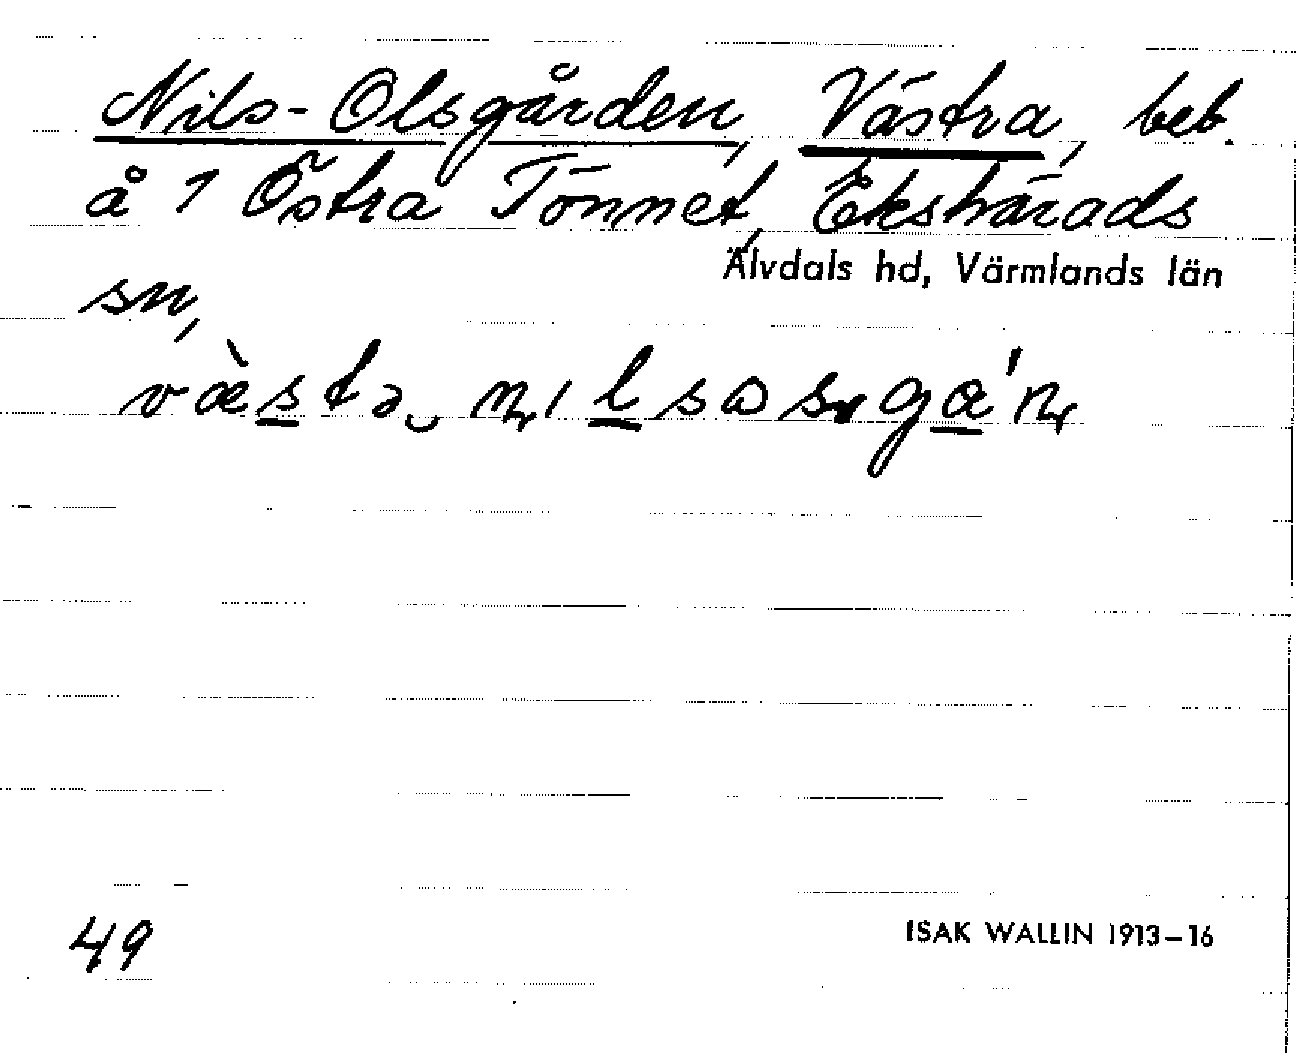 Nils-Olsgården, Västra, beb.
å 1 Östra Tönnet, Ekshärads
Älvdals hd, Värmlands län
sn,
væ̀stə n̥ılsɷsgá'n̥
49
ISAK WALLIN 1913–16